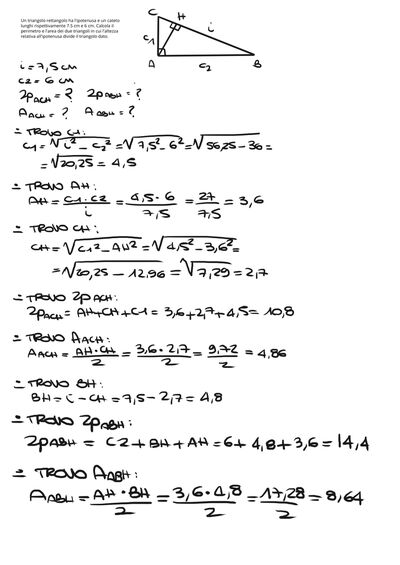 Un triangolo rettangolo ha l'ipotenusa e un cateto
lunghi rispettivamente 7.5 cm e 6 cm. Calcola il
perimetro e l'area dei due triangoli in cui l'altezza
relativa all'ipotenusa divide il triangolo dato.
C H
i
C1
A C2 B
i = 7,5 cm
C2 = 6 cm
2PACH = ? 2PABH = ?
AACH = ? AABH = ?
÷ TROVO C1:
C1 = √i² - C2² = √7,5² - 6² = √56,25 - 36 =
= √20,25 = 4,5
÷ TROVO AH:
AH = C1 · C2 / i = 4,5 · 6 / 7,5 = 27 / 7,5 = 3,6
÷ TROVO CH:
CH = √C1² - AH² = √4,5² - 3,6² =
= √20,25 - 12,96 = √7,29 = 2,7
÷ TROVO 2PACH:
2PACH = AH + CH + C1 = 3,6 + 2,7 + 4,5 = 10,8
÷ TROVO AACH:
AACH = AH · CH / 2 = 3,6 · 2,7 / 2 = 9,72 / 2 = 4,86
÷ TROVO BH:
BH = i - CH = 7,5 - 2,7 = 4,8
÷ TROVO 2PABH:
2PABH = C2 + BH + AH = 6 + 4,8 + 3,6 = 14,4
÷ TROVO AABH:
AABH = AH · BH / 2 = 3,6 · 4,8 / 2 = 17,28 / 2 = 8,64